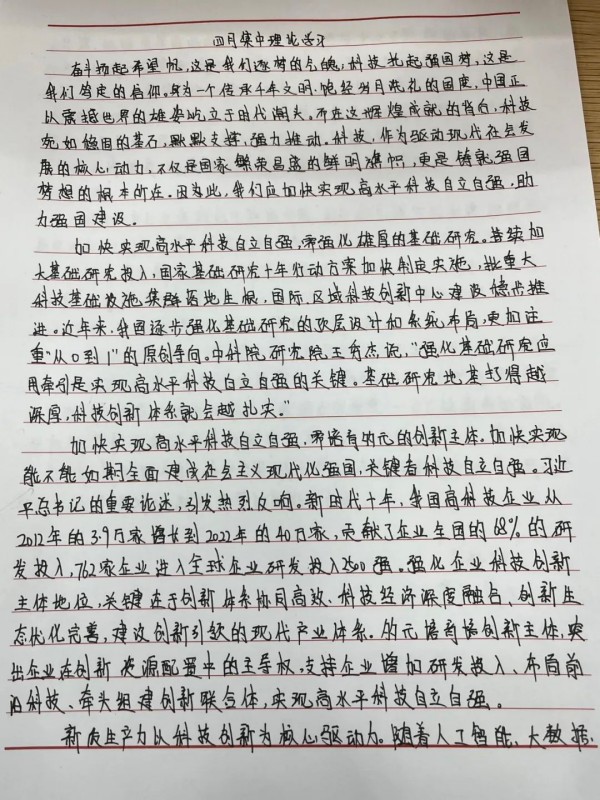 四月集中理论学习
奋斗扬起希望帆,这是我们逐梦的气魄;科技托起强国梦,这是
我们笃定的信仰。身为一个传承千年文明、饱经岁月洗礼的国度,中国正
以震撼世界的雄姿屹立于时代潮头。而在这辉煌成就的背后,科技
宛如稳固的基石,默默支撑,强力推动。科技,作为驱动现代社会发
展的核心动力,不仅是国家繁荣昌盛的鲜明旗帜,更是铸就强国
梦想的根本所在。因为此,我们应加快实现高水平科技自立自强,助
力强国建设。
加快实现高水平科技自立自强,需强化雄厚的基础研究。持续加
大基础研究投入,国家基础研究十年行动方案加快制定实施,一批重大
科技基础设施集群落地生根,国际、区域科技创新中心建设稳步推
进。近年来,我国逐步强化基础研究的顶层设计和系统布局,更加注
重“从0到1”的原创导向。中科院研究院王秀杰说,“强化基础研究应
用牵引是实现高水平科技自立自强的关键。基础研究地基打得越
深厚,科技创新体系就会越扎实。”
加快实现高水平科技自立自强,需培育多元的创新主体。加快实现
能不能如期全面建成社会主义现代化强国,关键看科技自立自强。习近
平总书记的重要论述,引发热烈反响。新时代十年,我国高科技企业从
2012年的3.9万家增长到2022年的40万家,贡献了企业全国的68%的研
发投入,762家企业进入全球企业研发投入2500强。强化企业科技创新
主体地位,关键在于创新体系协同高效、科技经济深度融合、创新生
态优化完善,建设创新引领的现代产业体系。多元培育创新主体,突
出企业在创新资源配置中的主导权,支持企业增加研发投入、布局前
沿科技、牵头组建创新联合体,实现高水平科技自立自强。
新质生产力以科技创新为核心驱动力。随着人工智能、大数据、